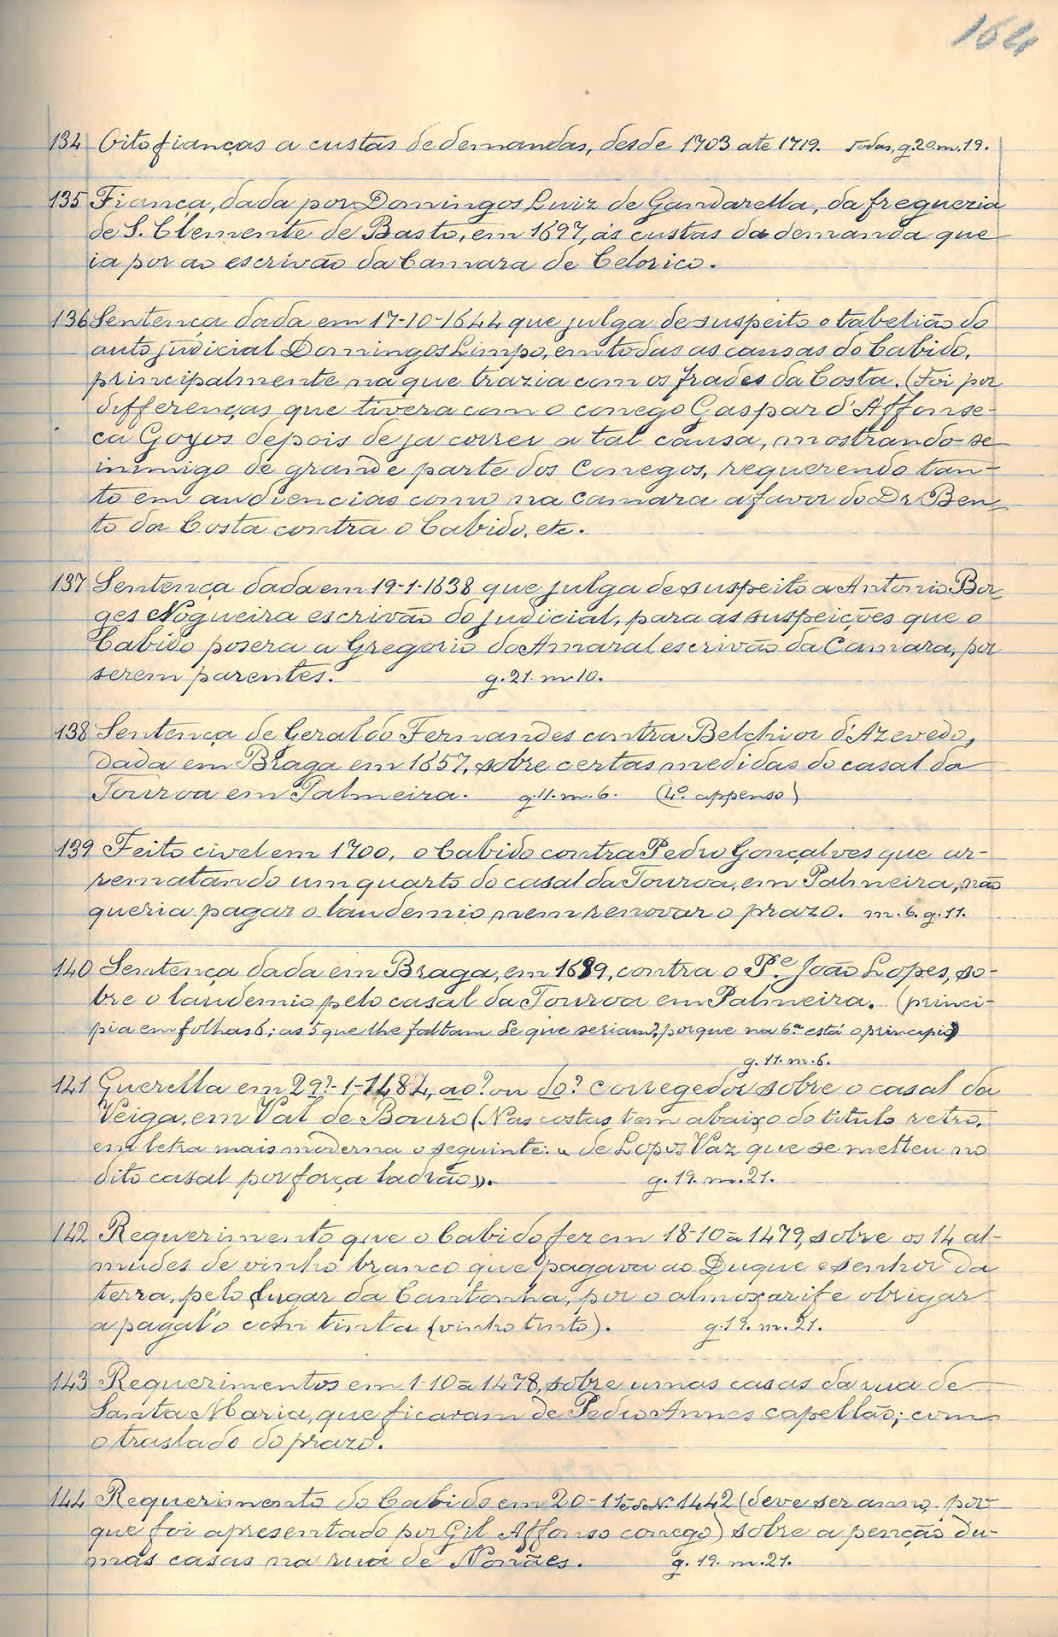 164
134 Oito fianças a custas de demandas, desde 1703 até 1719. Todas, g. 20 m. 19.
135 Fiança, dada por Domingos Luiz de Gandarella, da freguezia
de S. Clemente de Basto, em 1697, ás custas da demanda que
ia por ao escrivão da Camara de Celorico.
136 Sentença dada em 17-10-1644 que julga de suspeito o tabelião do
auto judicial Domingos Limpo, em todas as causas do Cabido,
principalmente na que trazia com os frades da Costa. (Foi por
differenças que tivera com o conego Gaspar d'Affonse-
ca Goyos depois de ja correr a tal causa, mostrando-se
inimigo de grande parte dos Conegos, requerendo tan-
to em audiencias como na camara a favor do Dr. Ben-
to da Costa contra o Cabido, etc.
137 Sentença dada em 19-1-1638 que julga de suspeito a Antonio Bor-
ges Nogueira escrivão do judicial, para as suspeições que o
Cabido posera a Gregorio do Amaral escrivão da Camara, por
serem parentes. g. 21. m. 10.
138 Sentença de Geraldo Fernandes contra Belchior d'Azevedo,
dada em Braga em 1657, sobre certas medidas do casal da
Touroa em Palmeira. g. 11. m. 6. (4º. appenso)
139 Feito civel em 1700, o Cabido contra Pedro Gonçalves que ar-
rematando um quarto do casal da Touroa, em Palmeira, não
queria pagar o laudemio, nem renovar o prazo. m. 6. g. 11.
140 Sentença dada em Braga, em 1689, contra o P.e João Lopes, so-
bre o laudemio pelo casal da Touroa em Palmeira. (princi-
pia em folhas 6; as 5 que lhe faltam de que seriam?, porque na 6.ª está o principio)
g. 11. m. 6.
141 Querella em 29?-1-1484, ao? ou do? corregedor sobre o casal da
Veiga, em Val de Bouro (Nas costas tem abaixo do titulo retro,
em letra mais moderna o seguinte: « de Lopo Vaz que se metteu no
dito casal por força ladrão». g. 19. m. 21.
142 Requerimento que o Cabido fez em 18-10-a 1479, sobre os 14 al-
mudes de vinho branco que pagava ao Duque e senhor da
terra, pelo lugar da Cantonha, por o almoxarife obrigar
a pagal'o com tinta (vinho tinto). g. 19. m. 21.
143 Requerimentos em 1-10-a 1478, sobre umas casas da rua de
Santa Maria, que ficaram de Pedro Annes capellão; com
o traslado do prazo.
144 Requerimento do Cabido em 20-11- 1442 (deve ser anno, por-
que foi apresentado por Gil Affonso conego) sobre a penção du-
mas casas na rua de Nonães. g. 19. m. 21.